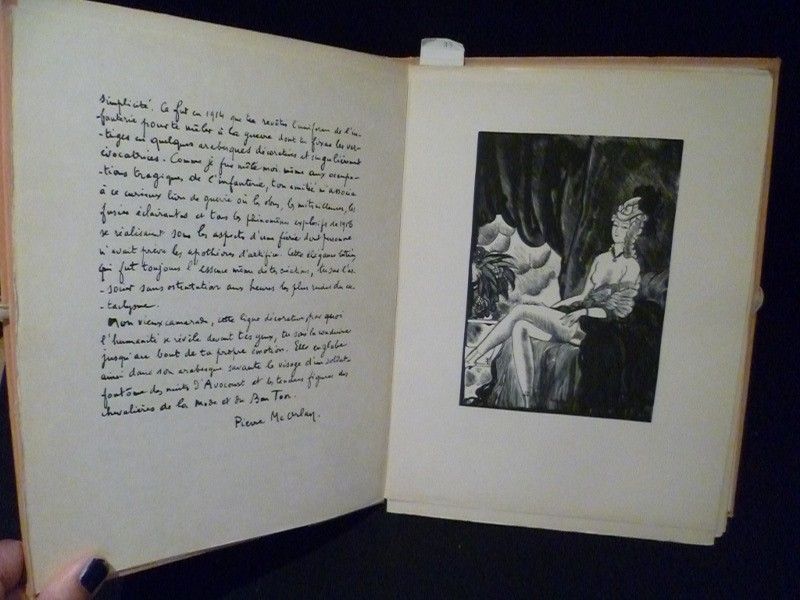 simplicité. Ce fut en 1914 que tu revêtis l'uniforme de l'in-
-fanterie pour te mêler à la guerre dont tu fixas les ver-
-tiges en quelques arabesques décoratives et singulièrement
évocatrices. Comme je fus mêlé moi même aux occupa-
-tions tragiques de l'infanterie, ton amitié m'associa
à ce curieux livre de guerre où les obus, les mitrailleuses, les
fusées éclairantes et tous les phénomènes explosifs de 1916
se réalisaient sous les aspects d'une féérie dont personne
n'avait prévu les apothéoses d'artifice. Cette élégance
qui fut toujours l'essence même de tes, tu sus l'as-
-souvir sans ostentation aux heures les plus rudes du ca-
-taclysme.
Mon vieux camarade, cette ligne décorative, par quoi
l'humanité se révèle devant tes yeux, tu sais la conduire
jusqu'au bout de ta propre émotion. Elle englobe
ainsi dans son arabesque savante le visage d'un soldat
fantôme des nuits d'Avocourt et les tendres figures des
chevalières de la Mode et du Bon Ton.
Pierre Mc Orlan.